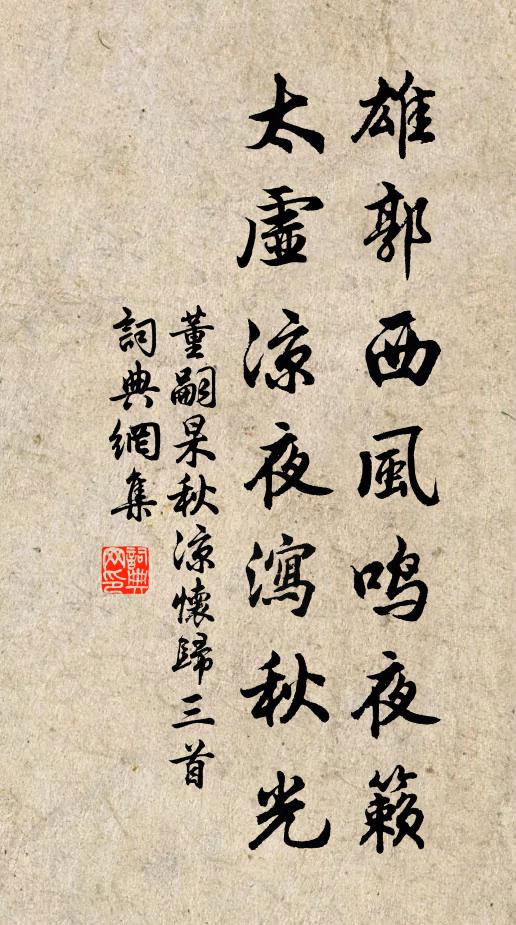 雄郭西風鳴夜籟
太虛凉夜瀉秋光
董嗣杲秋凉懷歸三首
詞典網集
詞典網印